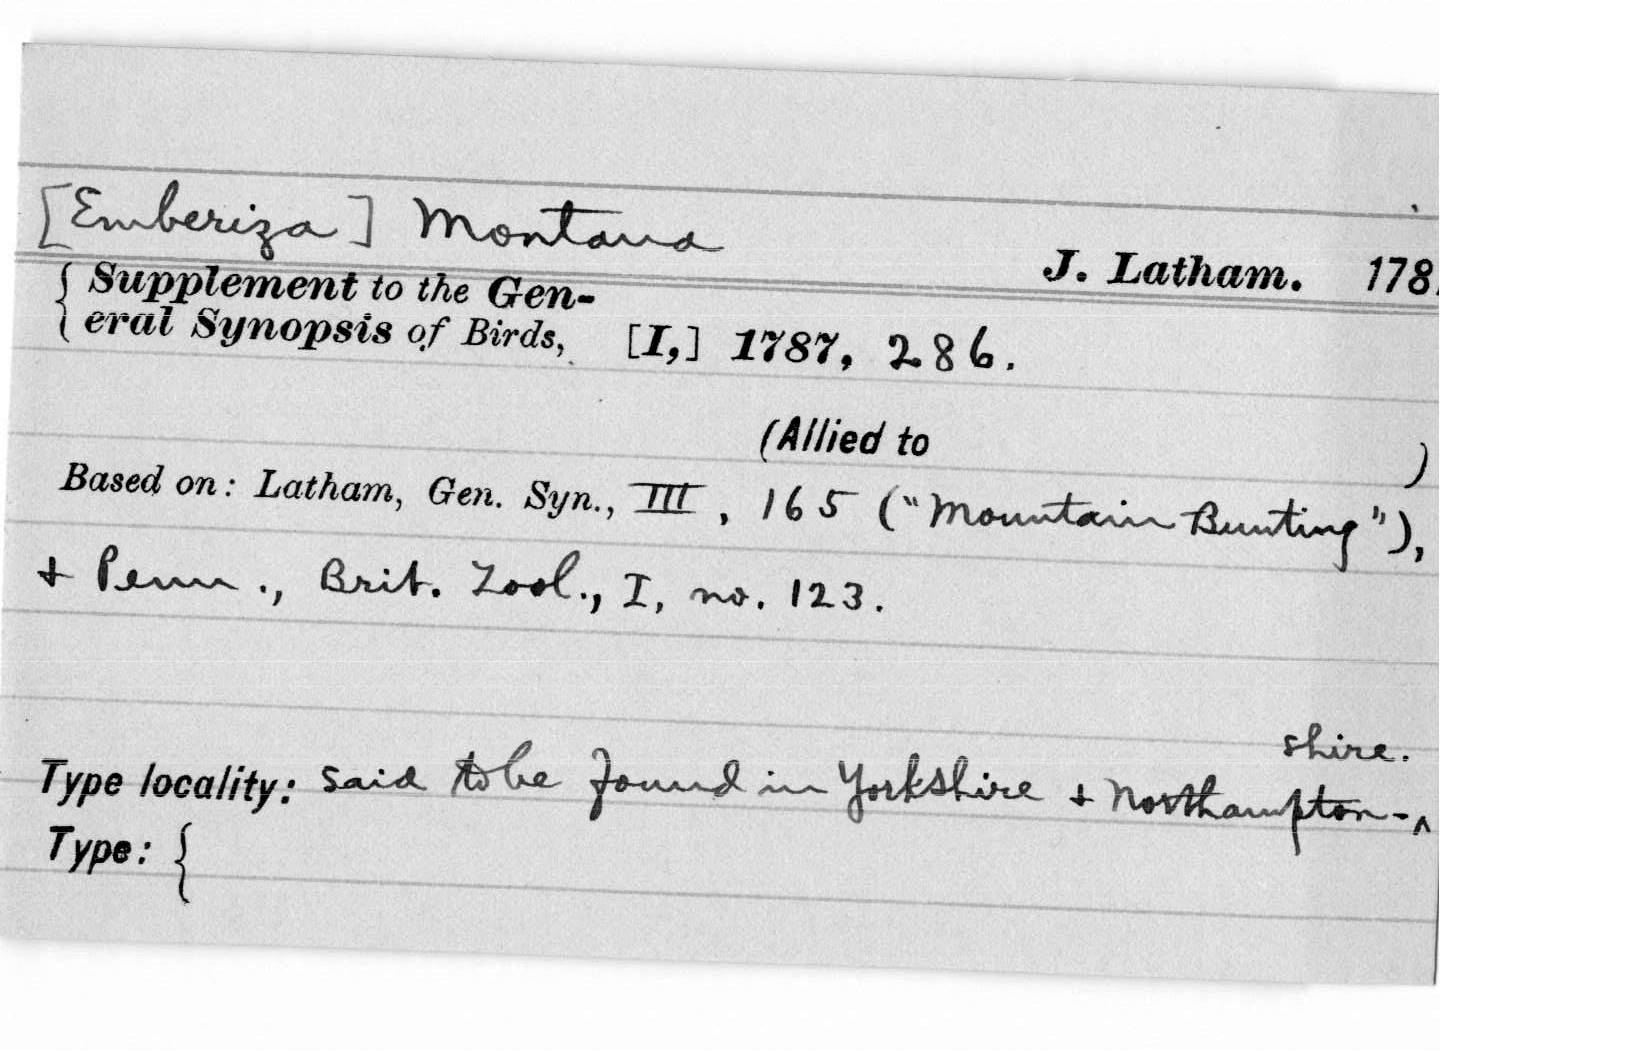 [Emberiza] Montana
J. Latham. 178
{ Supplement to the Gen-
eral Synopsis of Birds, [I,] 1787, 286.
(Allied to )
Based on: Latham, Gen. Syn., III, 165 ("Mountain Bunting"),
+ Penn., Brit. Zool., I, no. 123.
shire.
Type locality: said to be found in Yorkshire + Northampton-^
Type: {